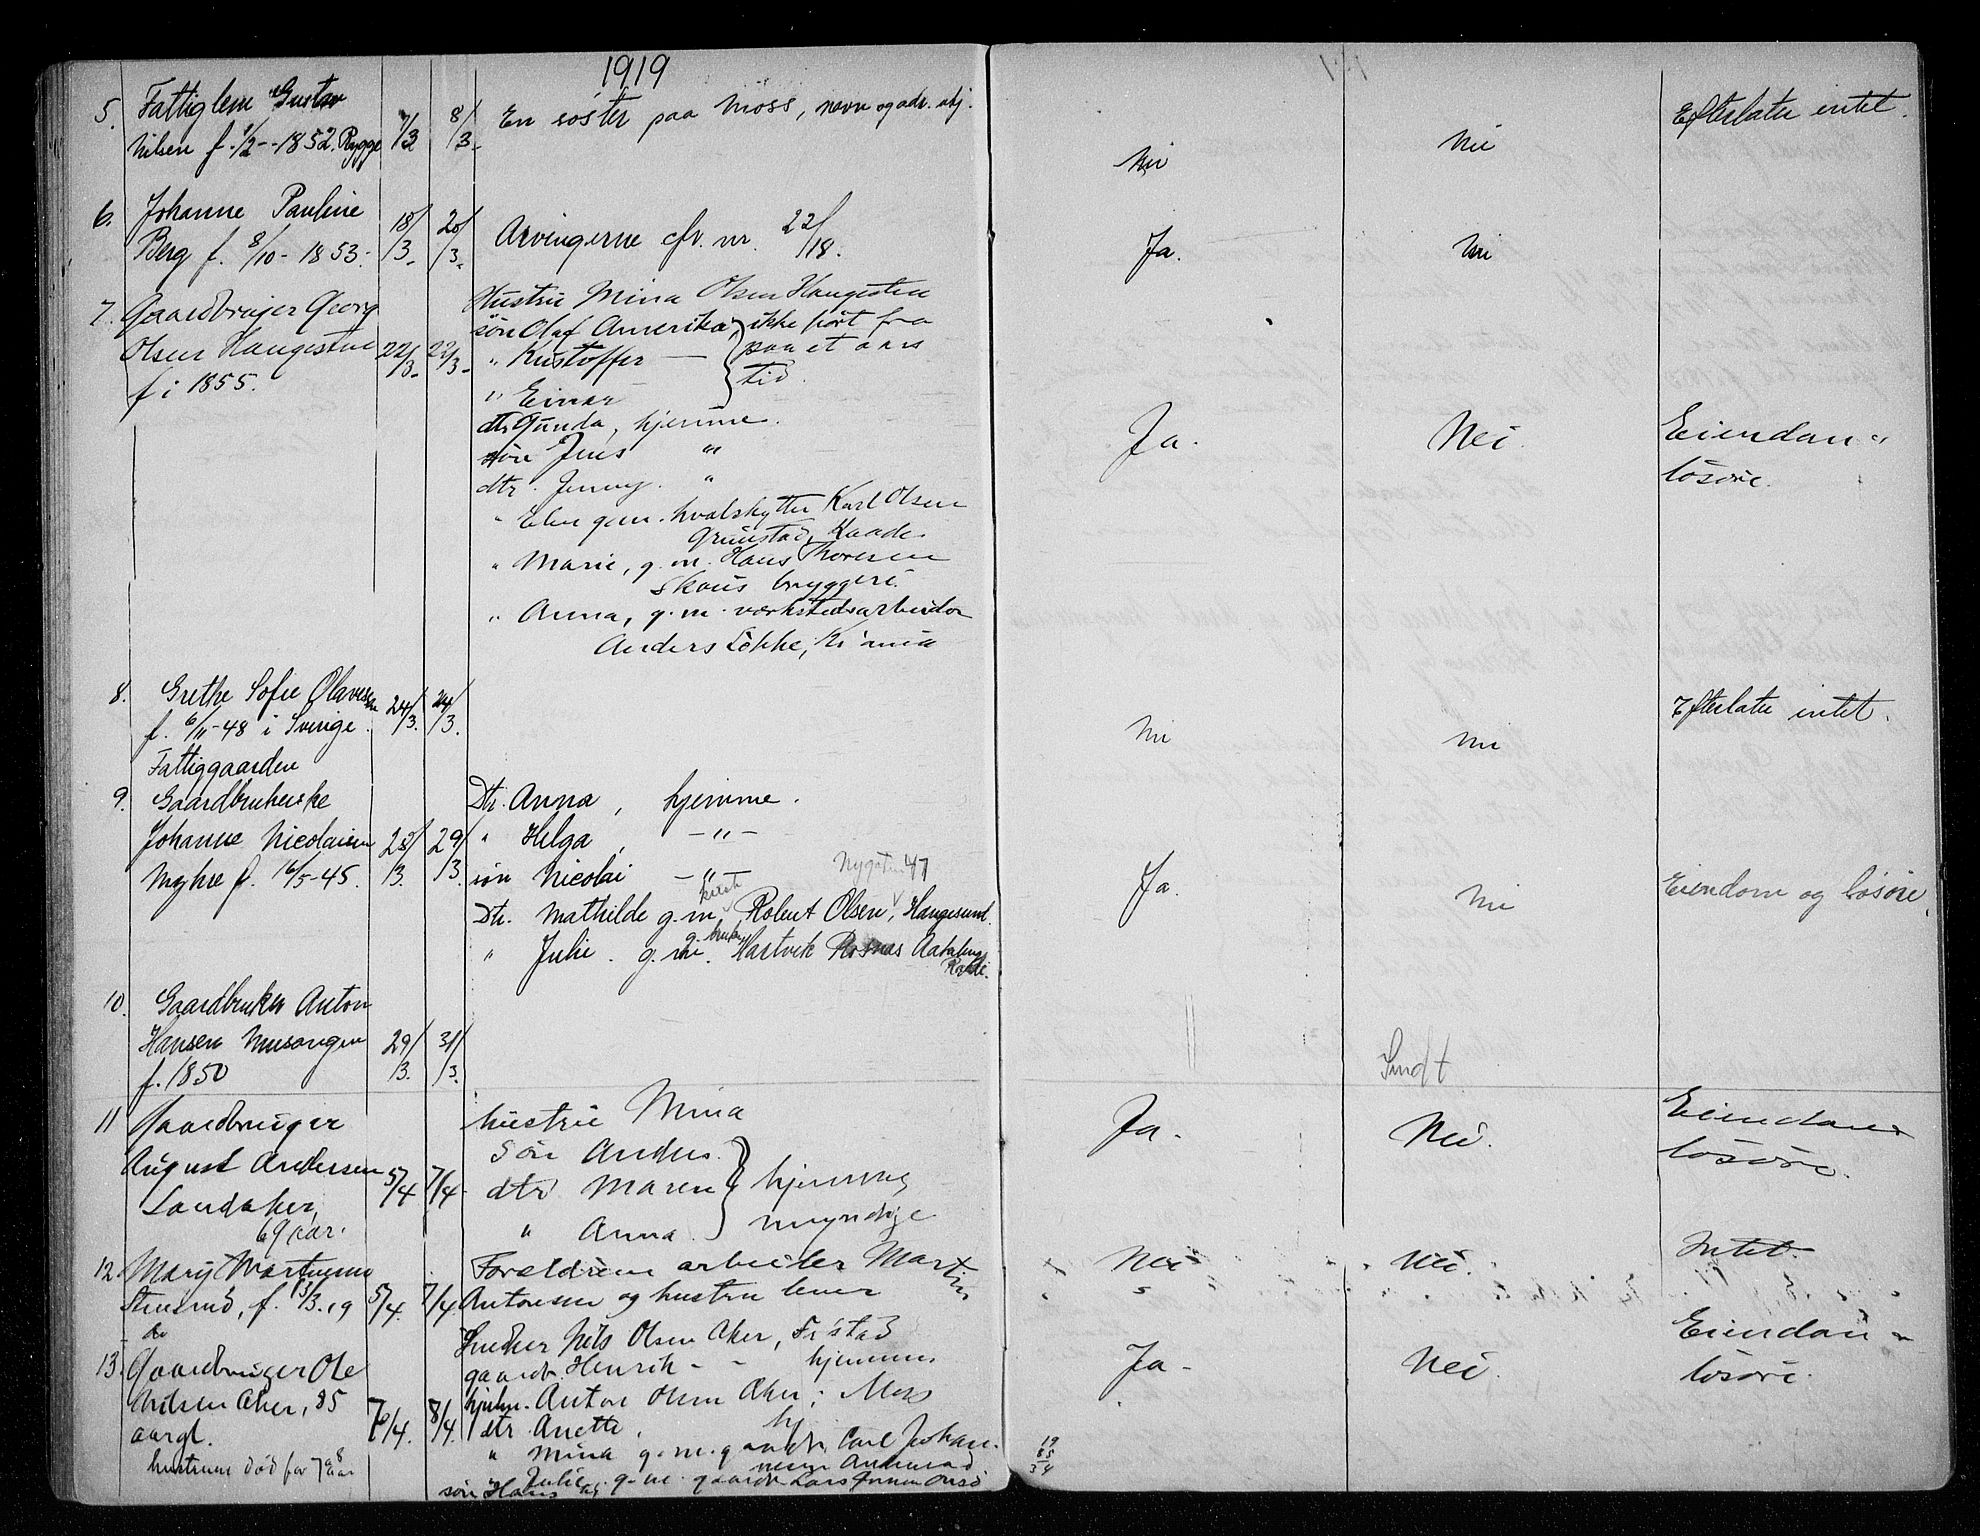 1919
5. Fattiglem Gustav
Nilsen f. 1/2 - 1852. Rygge 7/3 8/3. En söster paa Moss, navn og adr. Nei Nei Efterlater intet.
6. Johanne Pauline
Berg f. 8/10 - 1853. 18/3. 20/3. Arvingerne cfr. nr. 22/18. Ja. Nei
7. Gaardbruger Georg
Olsen Haugesten 22/3. 22/3.
f i 1855.
Hustru Mina Olsen Haugesten
sön Olaf Amerika } ikke hört fra
" Kristoffer — } paa et aars
" Einar } tid.
dtr Gunda, hjemme.
sön Jens "
dtr. Jenny. "
" Elen gem. hvalskytter Karl Olsen
Grimstad, Raade
" Marie, g.m. Hans Thoresen
Skous bryggeri.
" Anna, g.m. værkstedsarbeider
Anders Løkke, Kr'ania
Ja. Nei. Eiendom "
lösöre.
8. Grethe Sofie Olavesen 24/3. 24/3.
f. 6/11-48 i Sverige.
Fattiggaarden
Nei Nei Efterlater intet.
9. Gaardbrukerske
Johanne Nicolaisen 28/3. 29/3.
Myhre f. 16/5-45.
Dtr. Anna, hjemme.
" Helga, — " —
sön Nicolai — " — Nygaten 47
Dtr. Mathilde g.m. Robert Olsen, Haugesund.
" Julie. g.m. g. bruker Hartvik Rosnæs
Raade.
Ja. Nei Eiendom og lösöre.
10. Gaardbruker Anton
Hansen 29/3. 31/3.
f. 1850
Sendt
11 Gaardbruger
August Andersen 5/4 7/4.
Landaker,
69 aar.
hustru Mina
Sön Anders. }
dtr Maren } hjemme
" Anna. } myndige
Ja. Nei. Eiendom
lösöre.
12. Mary
Stensrud, f. 13/3.19 5/4. 7/4
Foreldrene arbeider Martin
Antonsen og hustru lever
Nei Nei. Intet.
13. Gaardbruger Ole
Nilsen Aker, 85 7/4. 8/4.
aargl.
hustruen död for 7 a 8 aar
Snedker Nils Olsen Aker, Fr'stad
gaardb. Henrik - - hjemme.
Anton Olsen Aker, Moss
dtr Anette, hj
" Mina g.m. gaardb. Carl Johan-
nesen
Julie g.m. gaardb. Lars
sön Hans
Ja - Nei. Eiendom
lösöre.
19
85
34